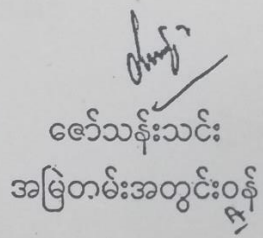 ဇော်သန်းသင်း
အမြဲတမ်းအတွင်းဝန်